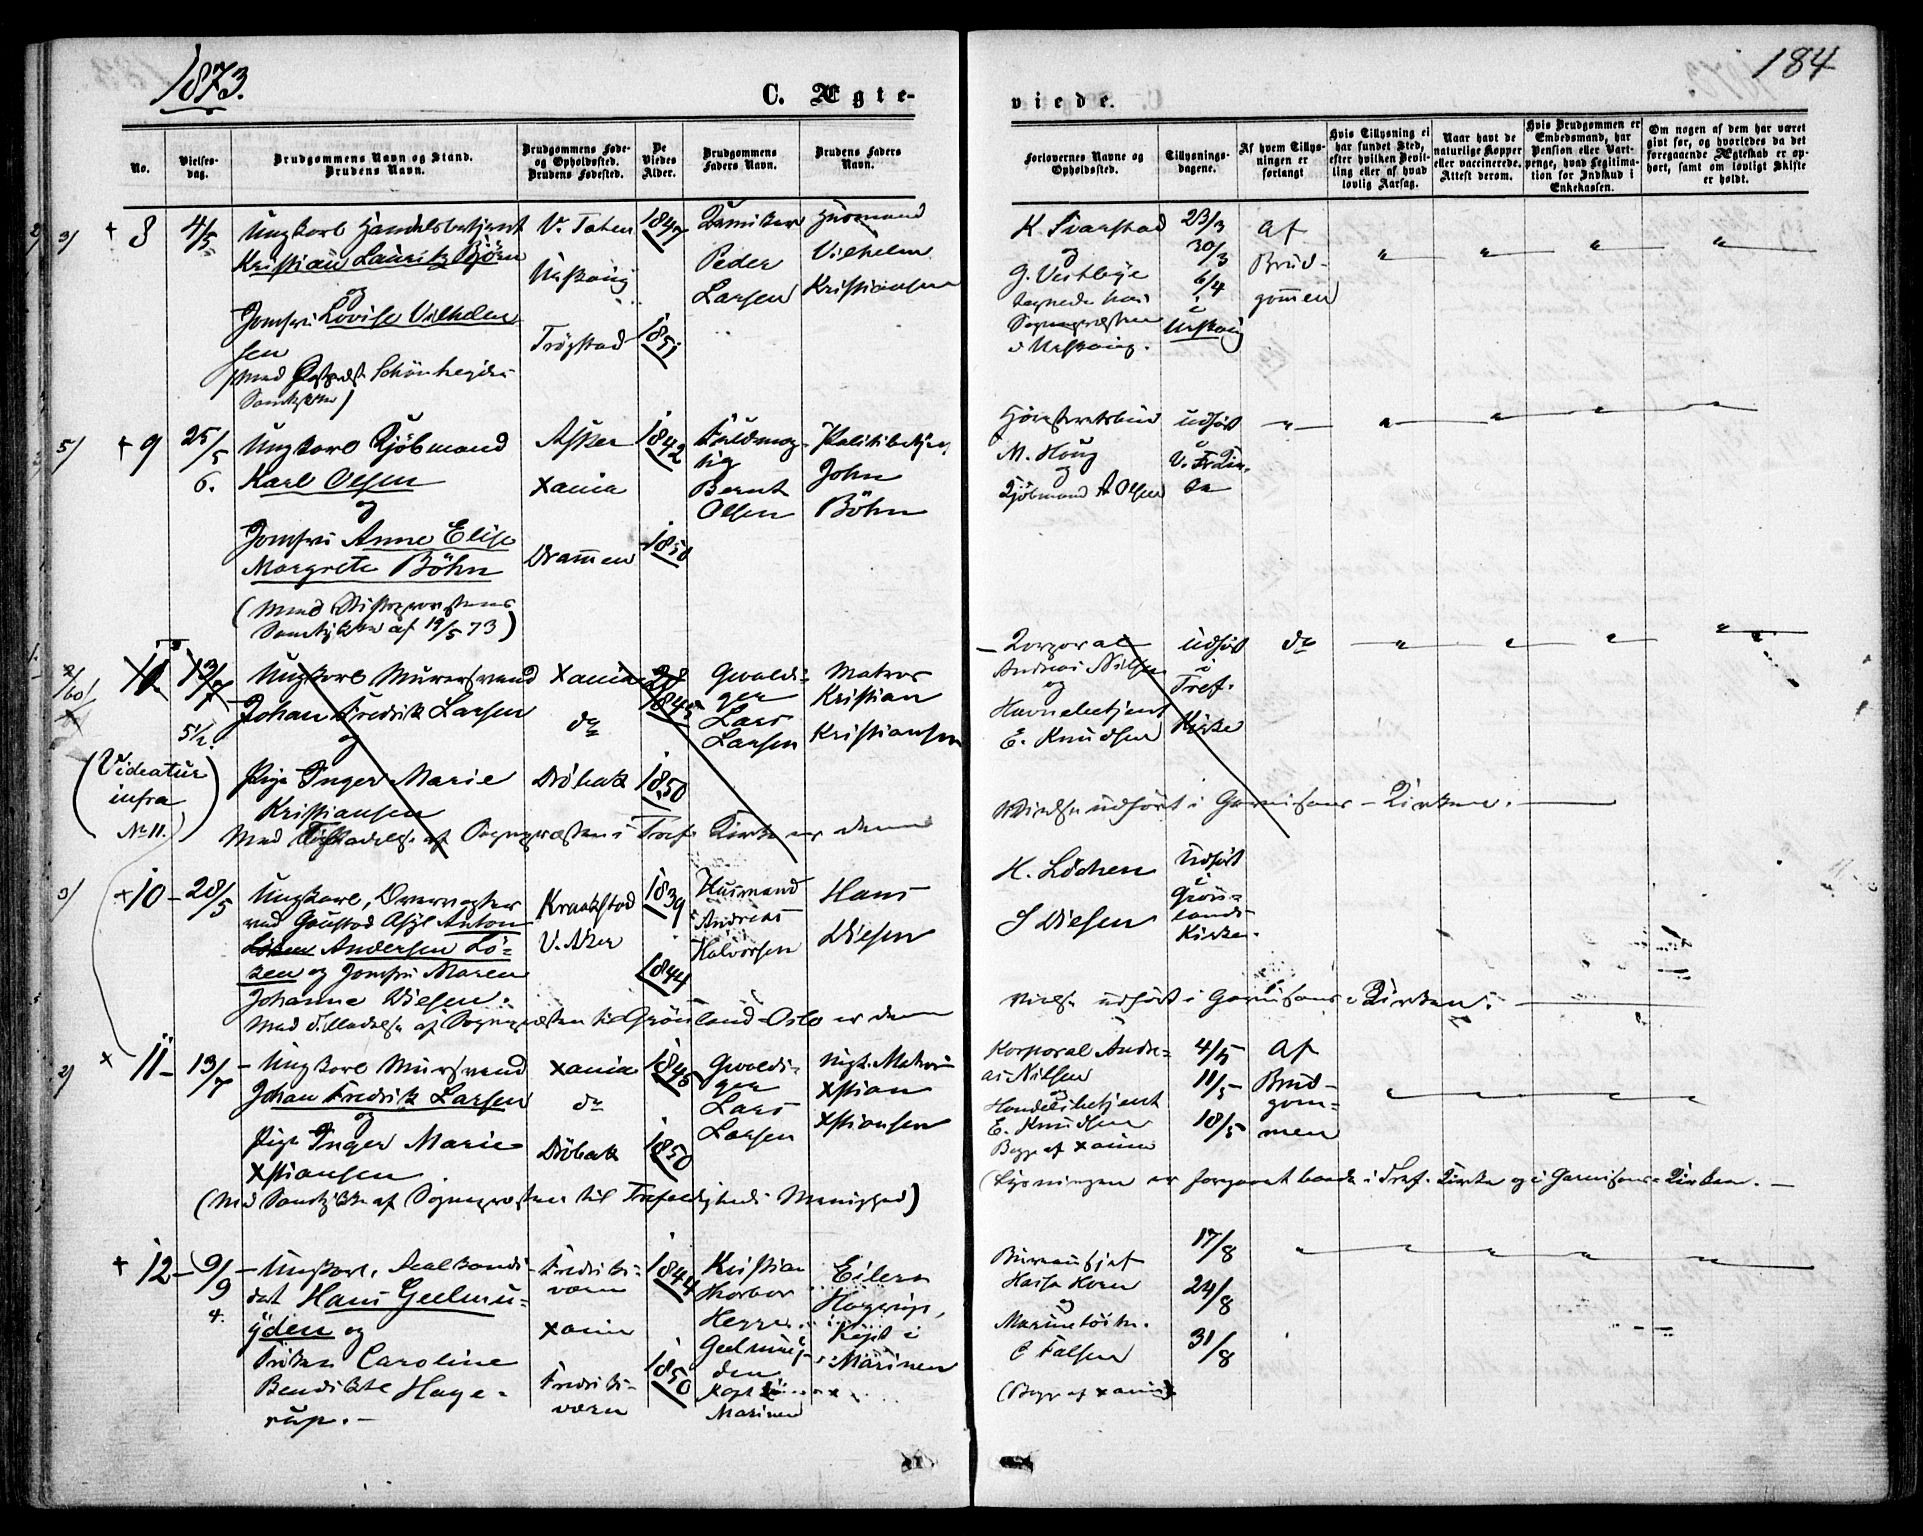 1873.
184
C. Ægte-
viede.
No.
Vielses-
dag.
Brudgommens Navn og Stand.
Brudens Navn.
Brudgommens Føde-
og Opholdssted.
Brudens Fødested.
De
Viedes
Alder.
Brudgommens
Faders Navn.
Brudens Faders
Navn.
Forlovernes Navne og
Opholdssted.
Tillysnings-
dagene.
Af hvem Tillys-
ningen er
forlangt
Hvis Tillysning ei
har fundet Sted,
efter hvilken Bevil-
ling eller af hvad
lovlig Aarsag.
Naar havt de
naturlige Kopper
eller vaccinerede.
Attest derom.
Hvis Brudgommen er
Embedsmand, har
Pension eller Vart-
penge, hvad Legitima-
tion for Indskud i
Enkekassen.
Om nogen af dem har været
gift før, og hvorledes da det
foregaaende Ægteskab er op-
hørt, samt om lovligt Skifte
er holdt.
3) + 8 4/5
Ungkarl Handelsbetjent
Kristian Lauritz Björn
og
Jomfru Lovise Vilhelm
sen
V. Toten
Urskoug
Trögstad
1847
1851
Peder
Larsen
Husmand
Vilhelm
Kristiansen
K. Svarstad
og
G. Vestbye
Sognepræsten
i Urskoug.
23/3
30/3
6/4
i
Urskoug
Af
Brud-
gommen
5) + 9 25/5
6.
Ungkarl Kjöbmand
Karl Olsen
og
Jomfru Anne Elise
Margrete Böhn
(Med Stiftsprovstens
Samtykke af 19/5 73)
Asker
Xania
Drammen
1842
1850
Fuldmæg-
tig
Bernt
Olsen
Politibetjen
John
Böhn
M. Houg
og
Kjöbmand A Olsen
udført
i
V. Frelser
10 13/7
5 1/2.
Ungkarl Murersvend
Johan Fredrik Larsen
og
Pige Inger Marie
Kristiansen
Med Tilladelse af Sognepræsten i Tref. Kirke er denne
(Videatur
infra
No 11.)
Xania
do
Dröbak
1845
1850
Gevaldi-
ger
Lars
Larsen
Matros
Kristian
Kristiansen
Korporal
Andreas Nilsen
og
Havnebetjent
E. Knudsen
udført
i
Tref.
Kirke
do
Vielse udført i Garnisons-Kirken.
3) + 10 - 28/5
Ungkarl, Overvogter
ved Goustad Asyl Anton
Andersen Lö-
ken og Jomfru Maren
Johanne Diesen.
Med Tilladelse af Sognepræsten til Grönland-Oslo er denne
Kraakstad
V. Aker
1839
1844
Husmand
Andreas
Halvorsen
Hans
Diesen
H. Löchen
S Diesen
Udført
i
Grön-
lands
Kirke.
Vielse udført i Garnisons-Kirken.
2) x 11 - 13/7
Ungkarl Mursvend
Johan Fredrik Larsen
og
Pige Inger Marie
Xstiansen
(Med Samtykke af Sognepræsten til Trefoldigheds Menighed)
Xania
do
Dröbak
1845
1850
Gevaldi-
ger
Lars
Larsen
Xstian
Xstiansen
Korporal Andre-
as Nilsen
og
Handelsbetjent
E. Knudsen
Begge af Xania
4/5
11/5
18/5
Af
Brud-
gom-
men
(Lysningen er foregaaet baade i Tref. Kirke og i Garnisons-Kirken.
+ 12 - 9/9
4.
Ungkarl, Realkandi-
dat Hans Geelmu-
yden og
Fröken Caroline
Bendikte Hage-
rup.
Fredriks-
værn
Xania
Fredriks-
værn
1844
1850
Kristian
Herman
Geelmuy-
den
Kapt i
Marinen
Eilert
Hagerup,
Kapt i
Marinen
Bureausjef
og
Marinelöitn.
C Falsen
(Begge af Xania)
17/8
24/8
31/8